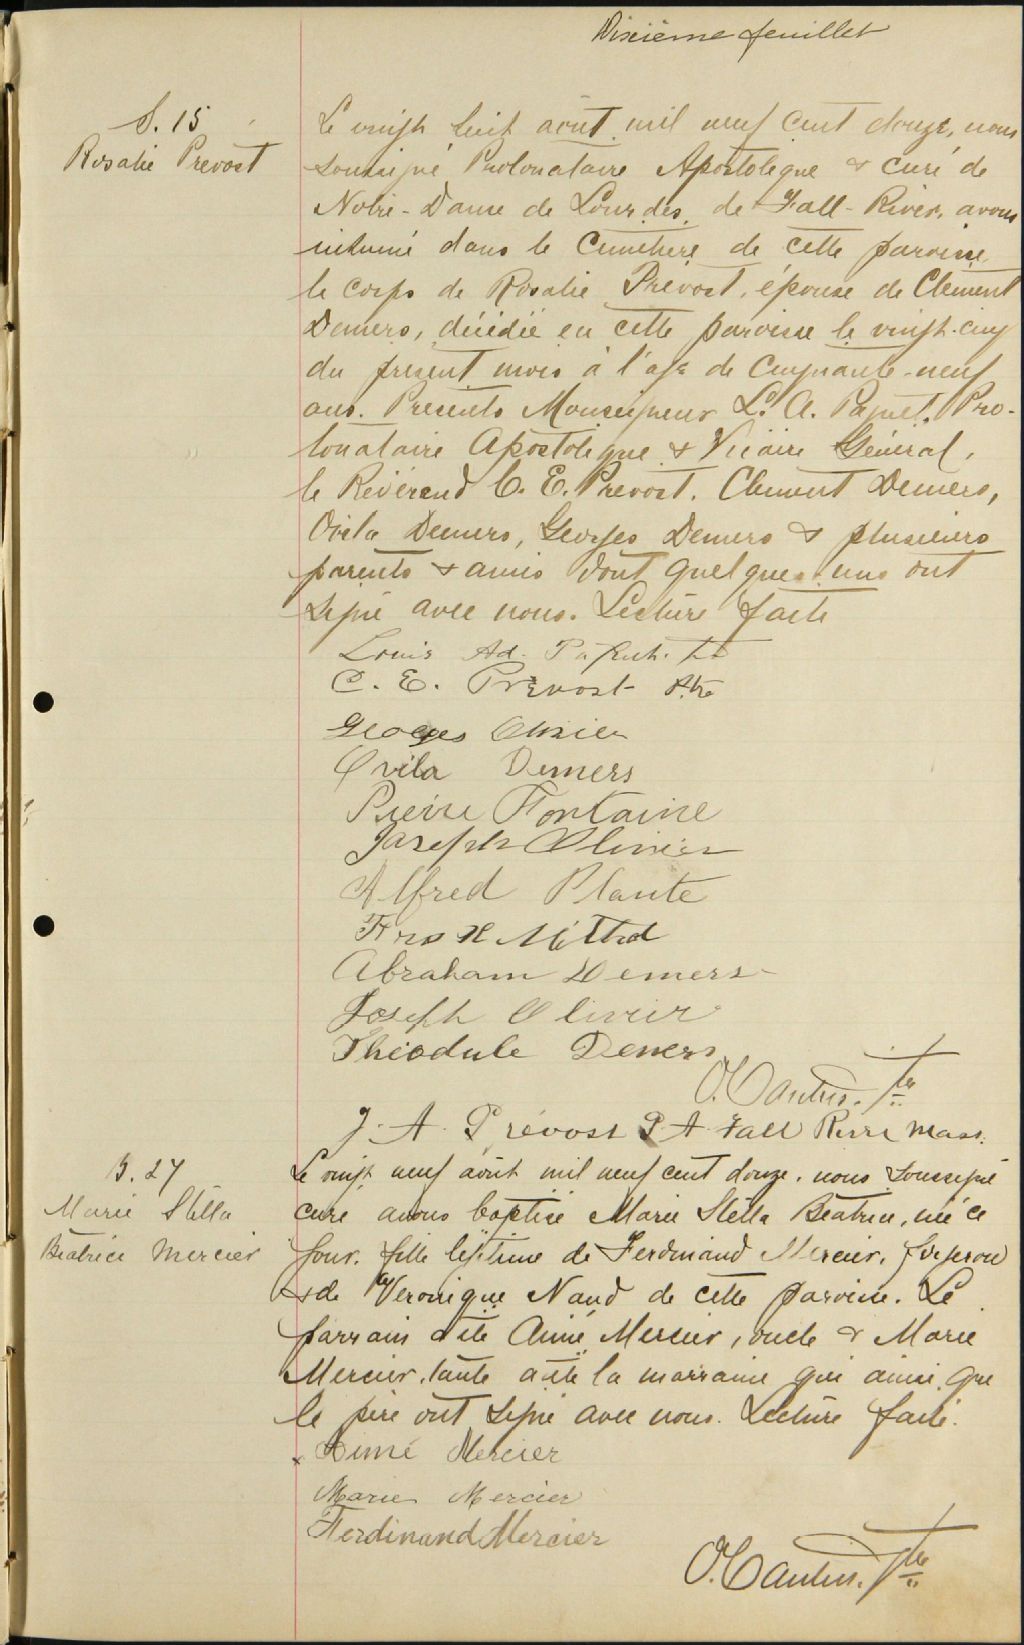 Dixième feuillet
S. 15
Rosalie Prevost
Le vingt huit août mil neuf cent douze, nous
soussigné Protonotaire Apostolique & curé de
Notre-Dame de Lourdes, de Fall-River, avons
inhumé dans le cimetière de cette paroisse
le corps de Rosalie Prevost, épouse de Clement
Demers, décédée en cette paroisse le vingt-cinq
du présent mois à l'age de cinquante-neuf
ans. Présents Monseigneur L. A. Paquet, Pro-
tonotaire Apostolique & Vicaire Général,
le Révérend C. E. Prevost, Clement Demers,
Ovila Demers, Georges Demers & plusieurs
parents & amis dont quelques uns ont
signé avec nous. Lecture faite
Louis Ad. Paquet. ptre
C. E. Prévost Ptre
Georges
Ovila Demers
Pierre Fontaine
Joseph Olivier
Alfred Plante
Frs X
Abraham Demers
Joseph Olivier
Théodule Demers
O. Cantin. Ptre
J. A. Prévost P. A. Fall River Mass.
B. 27
Marie Stella
Béatrice Mercier
Le vingt neuf août mil neuf cent douze, nous soussigné
curé avons baptisé Marie Stella Béatrice, née ce
jour, fille légitime de Ferdinand Mercier, forgeron
& de Veronique Naud de cette paroisse. Le
parrain a été Aimé Mercier, oncle & Marie
Mercier, tante a été la marraine qui ainsi que
le père ont signé avec nous. Lecture faite.
Aimé Mercier
Marie Mercier
Ferdinand Mercier
O. Cantin. Ptre